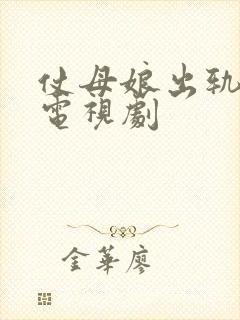 仗母娘出轨
電視劇
金華廖